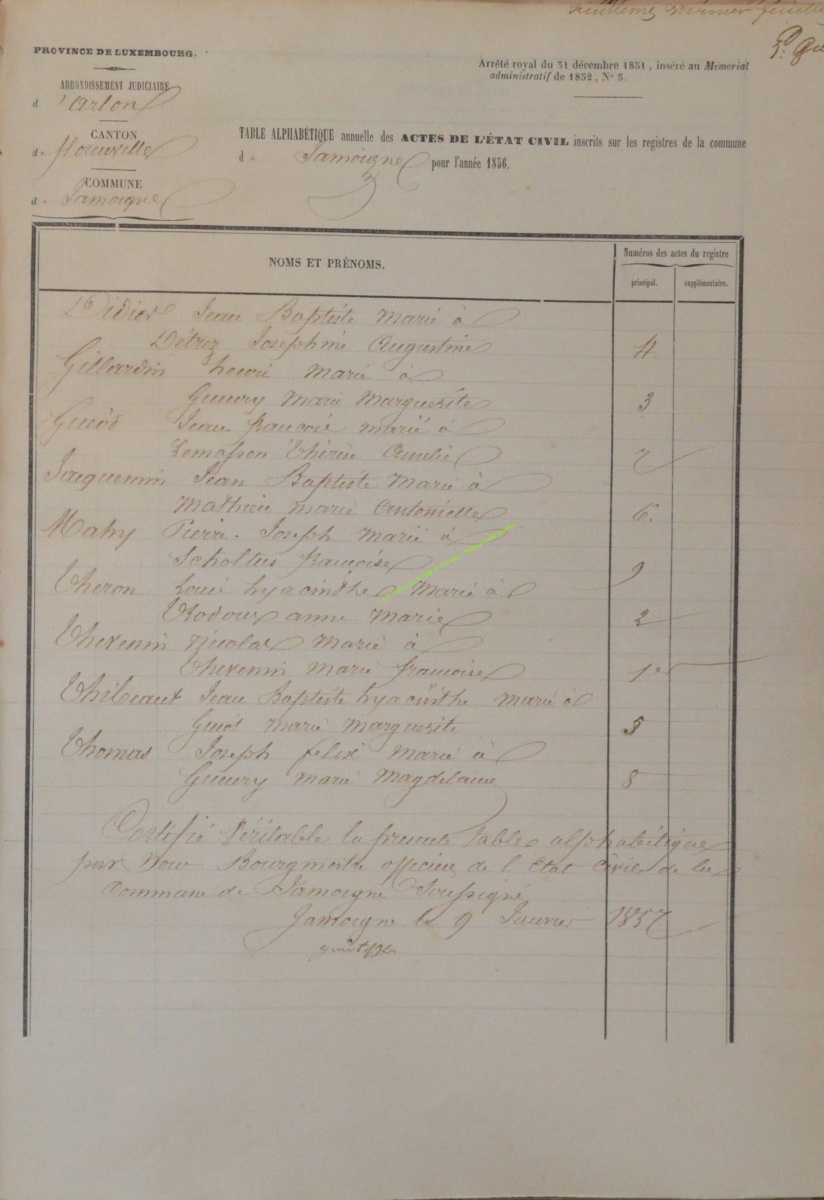 feuillet
PROVINCE DE LUXEMBOURG.
Arrêté royal du 31 décembre 1851, inséré au Mémorial
administratif de 1852, N° 5.
ARRONDISSEMENT JUDICIAIRE
d'Arlon
CANTON
de florenville
TABLE ALPHABÉTIQUE annuelle des ACTES DE L'ÉTAT CIVIL inscrits sur les registres de la commune
de Jamoigne pour l'année 1856.
COMMUNE
de Jamoigne
NOMS ET PRÉNOMS.
Numéros des actes du registre
principal. supplémentaire.
Didier Jean Baptiste marié à
Détrez Josephine Augustine 4
Gillardin henri marié à
Guiery Marie Marguerite 3
Guiot Jean francois marié à
Lemasson Thérèse Amelie 7
Jacquemin Jean Baptiste Marié à
Mathieu marie Antoinette 6.
Mahy Pierre-Joseph Marié à
Scholtus francoise 9
Theron Louis hyacinthe Marié à
Rodoux anne Marie 2
Thevenin Nicolas Marié à
Thevenin Marie francoise 1er
Thibeaut Jean Baptiste hyacinthe marié à
Guiot marie marguerite 5
Thomas Joseph felix Marié à
Guiery marie Magdelaine 8
Certifié Véritable la présente table alphabétique
par Nous Bourgmestre officier de l'Etat Civil de la
Commune de Jamoigne Soussigné
Jamoigne le 9 Janvier 1857